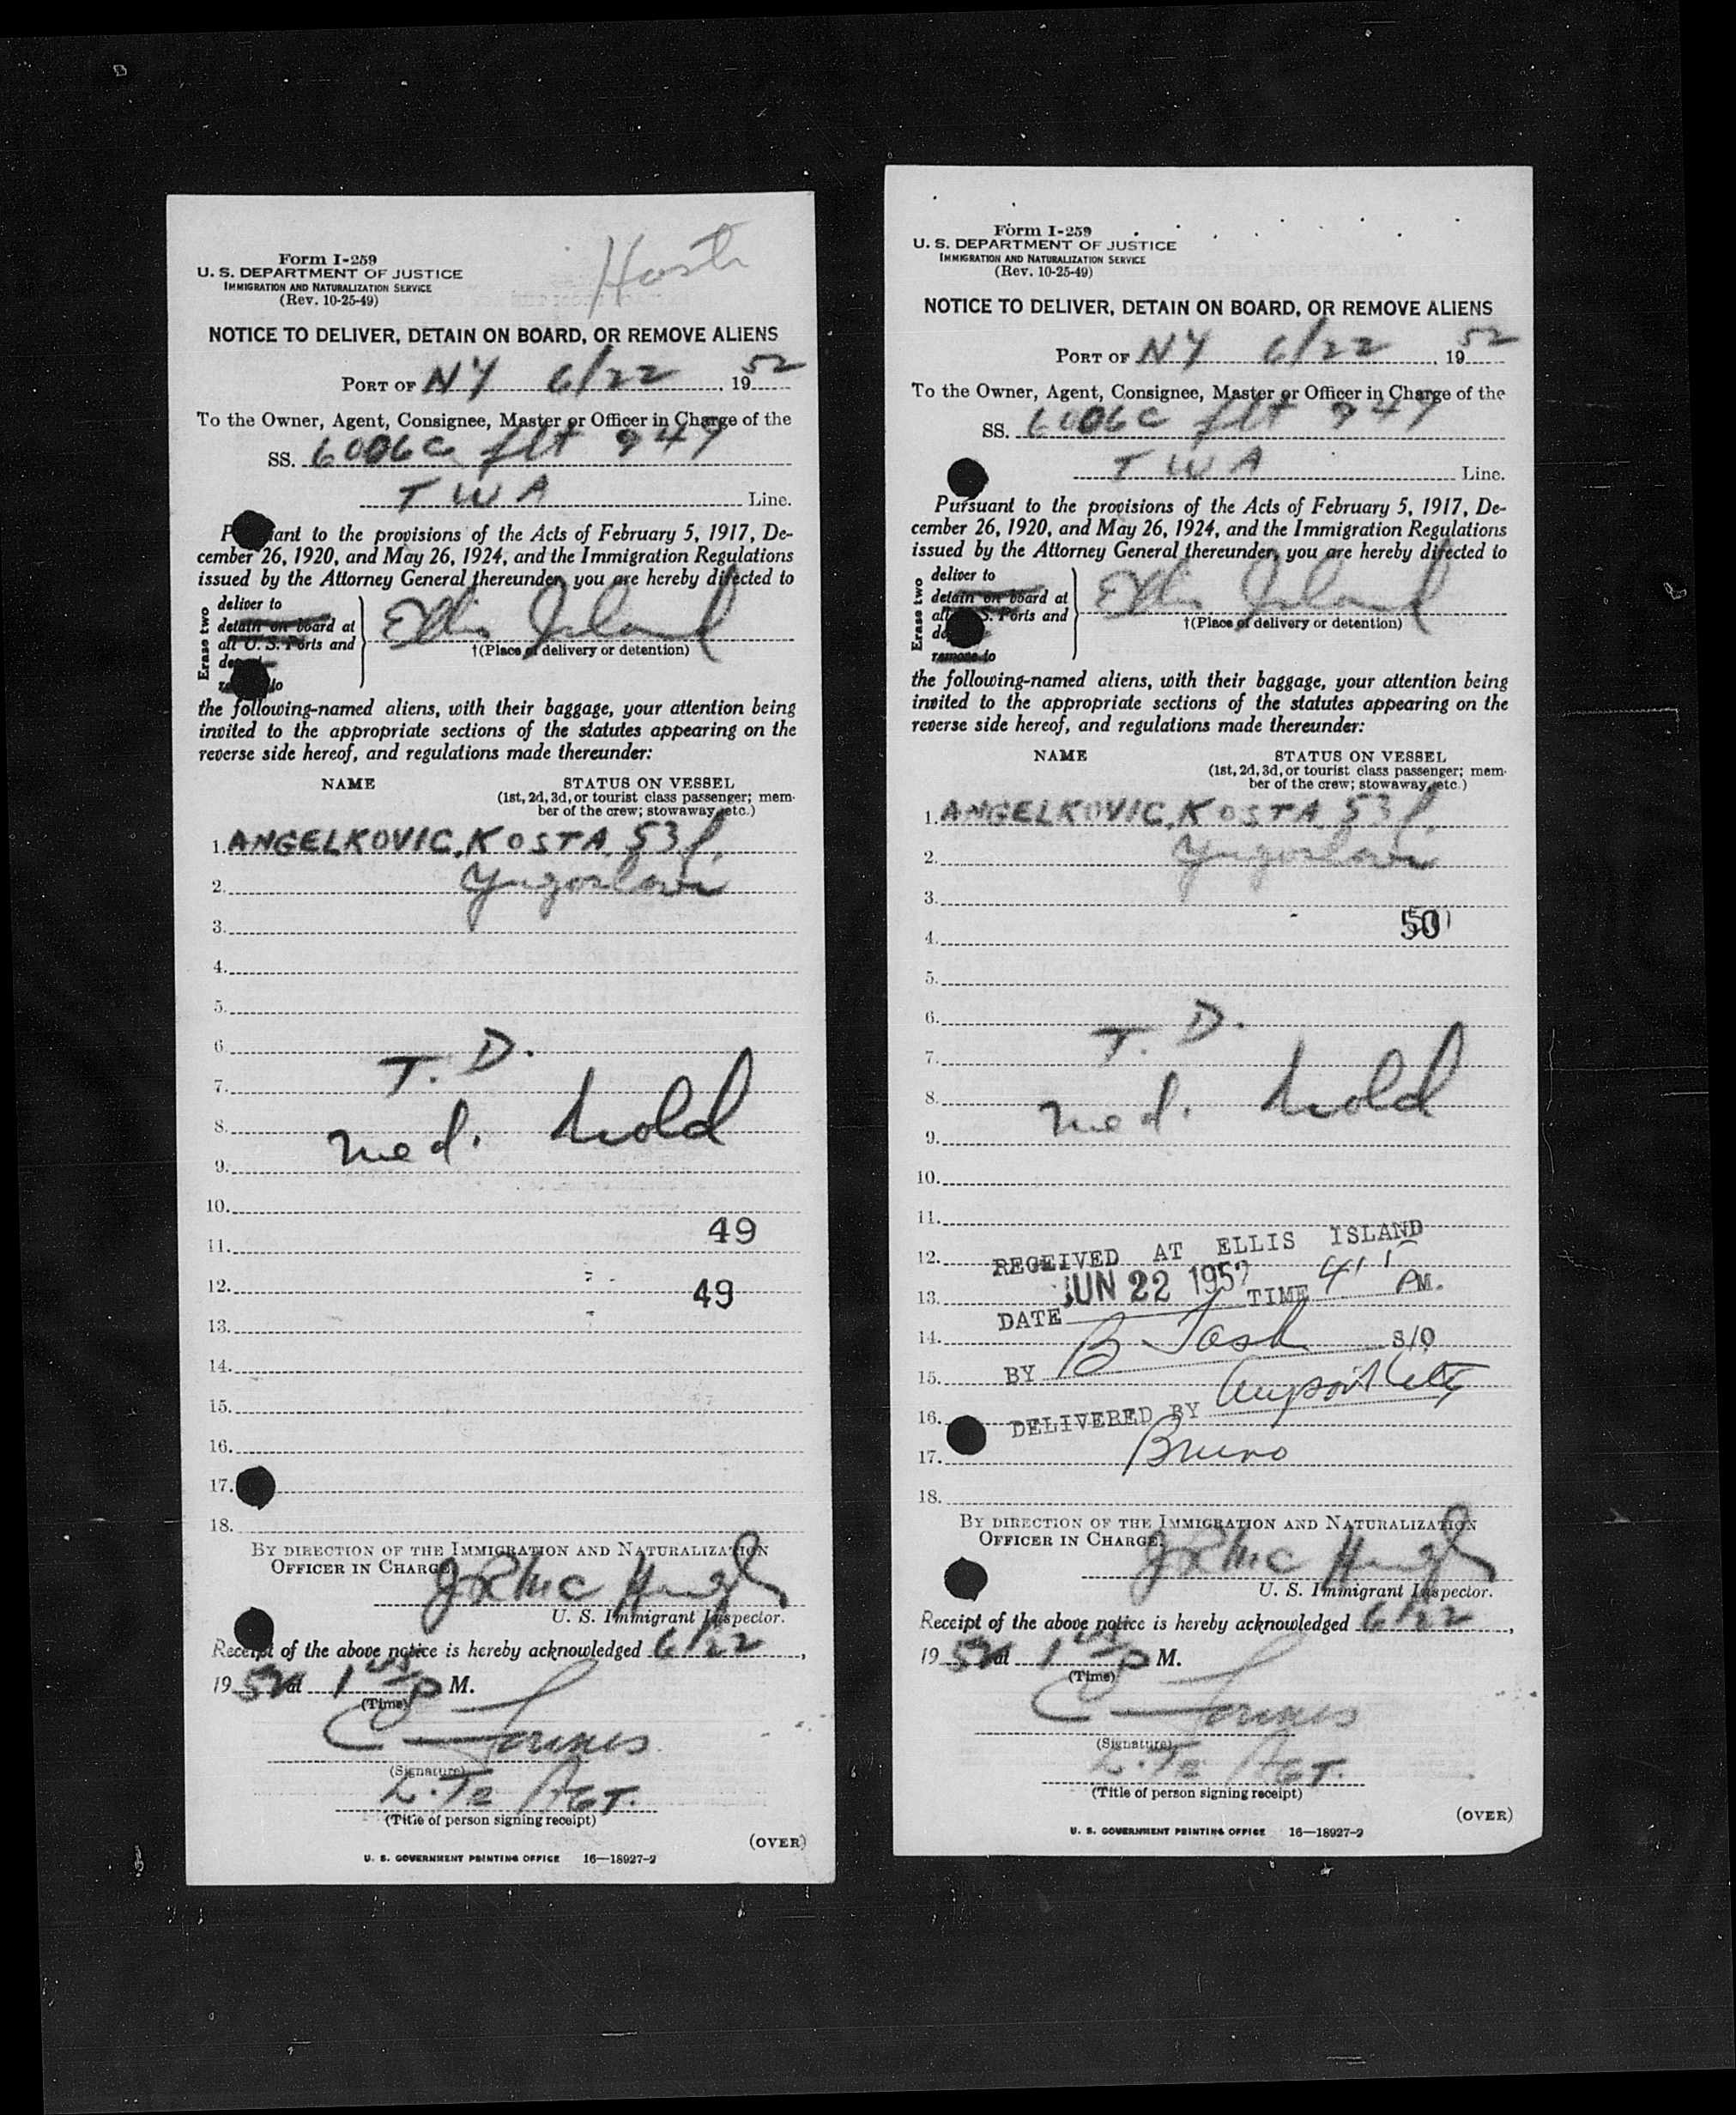 Form I-259
U. S. DEPARTMENT OF JUSTICE
IMMIGRATION AND NATURALIZATION SERVICE
(Rev. 10-25-49)
NOTICE TO DELIVER, DETAIN ON BOARD, OR REMOVE ALIENS
PORT OF NY 6/22, 1952
To the Owner, Agent, Consignee, Master or Officer in Charge of the
SS. 6006C flt 947
TWA Line.
Pursuant to the provisions of the Acts of February 5, 1917, De-
cember 26, 1920, and May 26, 1924, and the Immigration Regulations
issued by the Attorney General thereunder, you are hereby directed to
Erase two
deliver to
detain on board at
all U. S. Ports and
remove to
Ellis Island
†(Place of delivery or detention)
the following-named aliens, with their baggage, your attention being
invited to the appropriate sections of the statutes appearing on the
reverse side hereof, and regulations made thereunder:
NAME STATUS ON VESSEL
(1st, 2d, 3d, or tourist class passenger; mem-
ber of the crew; stowaway, etc.)
1. ANGELKOVIC, KOSTA 53
2. Yugoslavia
3.
4.
5.
6. T. D.
7.
8. med. hold
9.
10.
11. 49
12. 49
13.
14.
15.
16.
17.
18.
BY DIRECTION OF THE IMMIGRATION AND NATURALIZATION
OFFICER IN CHARGE
J R McHugh
U. S. Immigrant Inspector.
Receipt of the above notice is hereby acknowledged 6/22,
1952 at 1 P M.
(Time)
(Signature)
Agt.
(Title of person signing receipt)
(OVER)
U. S. GOVERNMENT PRINTING OFFICE 16—18927-2
Form I-259
U. S. DEPARTMENT OF JUSTICE
IMMIGRATION AND NATURALIZATION SERVICE
(Rev. 10-25-49)
NOTICE TO DELIVER, DETAIN ON BOARD, OR REMOVE ALIENS
PORT OF NY 6/22, 1952
To the Owner, Agent, Consignee, Master or Officer in Charge of the
SS. 6006C flt 947
TWA Line.
Pursuant to the provisions of the Acts of February 5, 1917, De-
cember 26, 1920, and May 26, 1924, and the Immigration Regulations
issued by the Attorney General thereunder, you are hereby directed to
Erase two
deliver to
detain on board at
all U. S. Ports and
remove to
Ellis Island
†(Place of delivery or detention)
the following-named aliens, with their baggage, your attention being
invited to the appropriate sections of the statutes appearing on the
reverse side hereof, and regulations made thereunder:
NAME STATUS ON VESSEL
(1st, 2d, 3d, or tourist class passenger; mem-
ber of the crew; stowaway, etc.)
1. ANGELKOVIC, KOSTA 53
2. Yugoslavia
3.
4. 50
5.
6. T. D.
7.
8. med. hold
9.
10.
11.
12. RECEIVED AT ELLIS ISLAND
13. DATE JUN 22 1952 TIME PM.
14. B. Tash S/O
15. BY
16. DELIVERED BY
17. Bruno
18.
BY DIRECTION OF THE IMMIGRATION AND NATURALIZATION
OFFICER IN CHARGE
J R McHugh
U. S. Immigrant Inspector.
Receipt of the above notice is hereby acknowledged 6/22,
1952 at 1 P M.
(Time)
(Signature)
Agt.
(Title of person signing receipt)
(OVER)
U. S. GOVERNMENT PRINTING OFFICE 16—18927-2